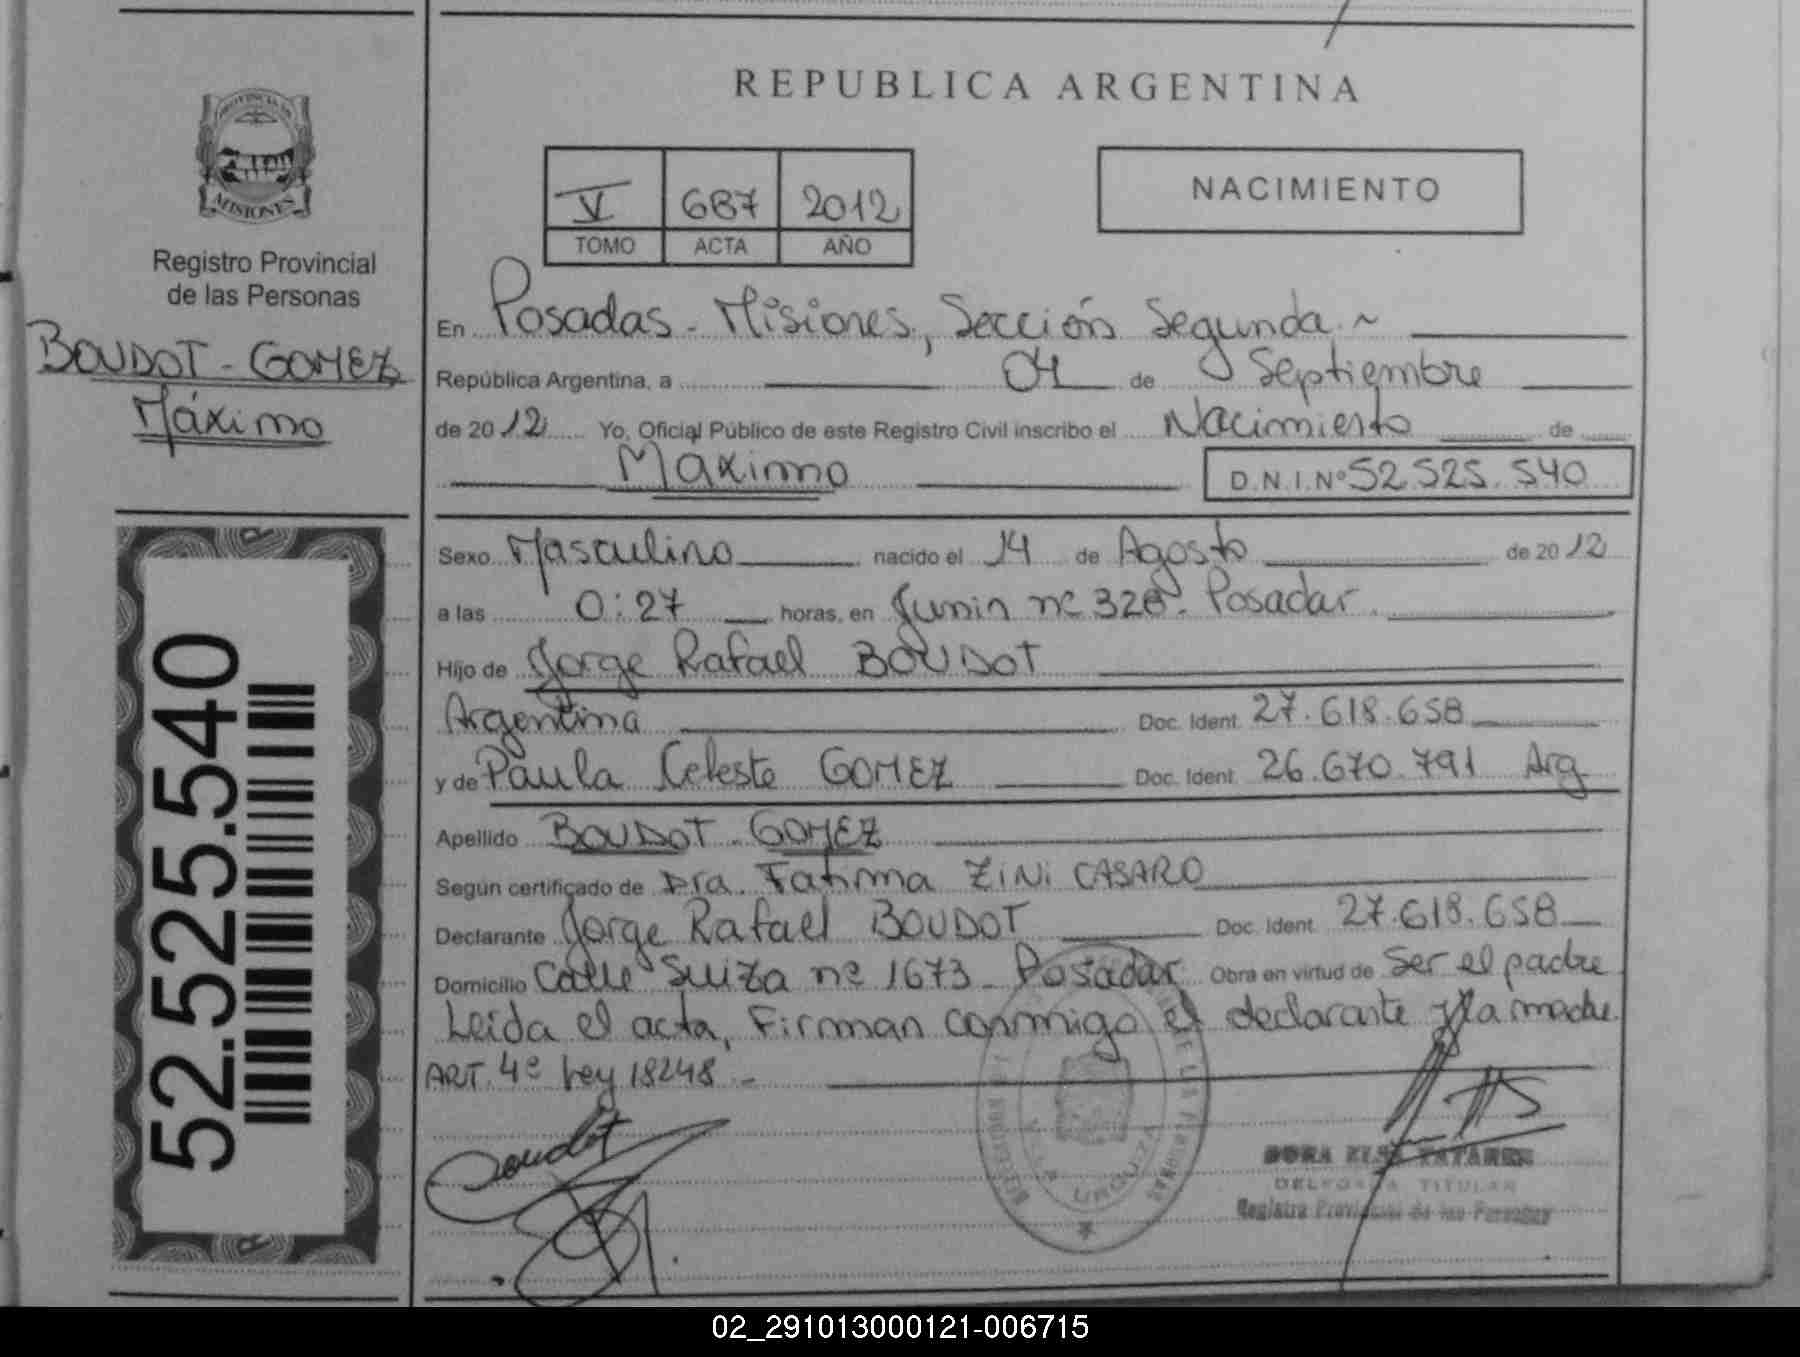 REPUBLICA ARGENTINA
PROVINCIA DE
MISIONES
Registro Provincial
de las Personas
BOUDOT - GOMEZ
Máximo
52.525.540
V 687 2012
TOMO ACTA AÑO
NACIMIENTO
En Posadas - Misiones, Sección Segunda.~
República Argentina, a 04 de Septiembre
de 2012 Yo, Oficial Público de este Registro Civil inscribo el Nacimiento de
Maximo D.N.I.Nº 52.525.540
Sexo Masculino nacido el 14 de Agosto de 2012
a las 0:27 horas, en Junin nº 320. Posadas
Hijo de Jorge Rafael BOUDOT
Argentina Doc. Ident. 27.618.658
y de Paula Celeste GOMEZ Doc. Ident. 26.670.791 Arg
Apellido BOUDOT - GOMEZ
Según certificado de Dra. Fatima ZINI CASARO
Declarante Jorge Rafael BOUDOT Doc. Ident. 27.618.658
Domicilio Calle Suiza nº 1673 - Posadas Obra en virtud de Ser el padre
Leida el acta, Firman conmigo el declarante y la madre.
ART. 4º Ley 18248.-
Boudot
VILLA URQUIZA
DORA ELSA
DELEGADA TITULAR
Registro Provincial de las Personas
02_291013000121-006715